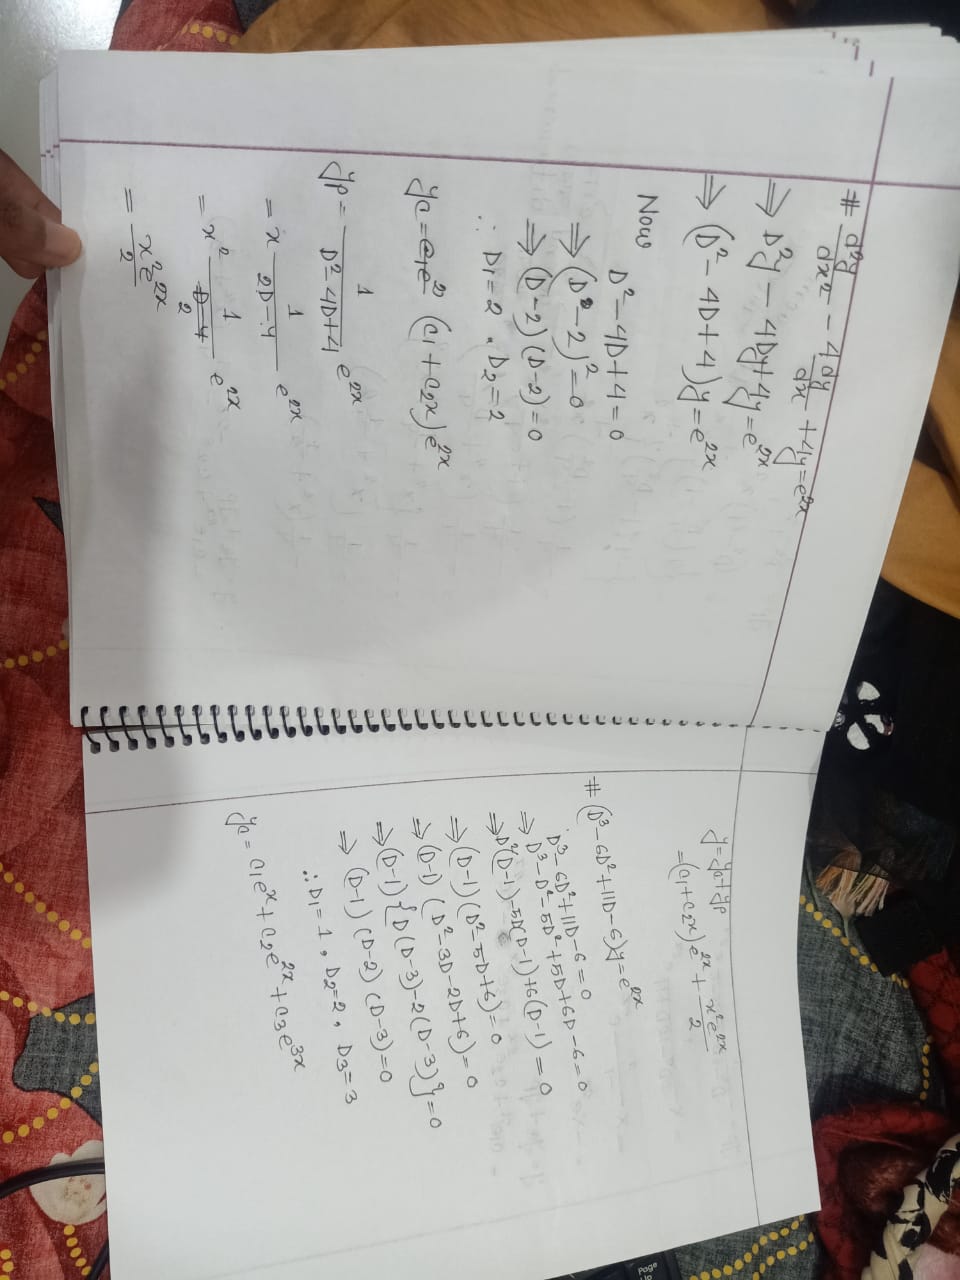 # d²y/dx² - 4 dy/dx + 4y = e^2x
⇒ D²y - 4Dy + 4y = e^2x
⇒ (D² - 4D + 4)y = e^2x
Now
D² - 4D + 4 = 0
⇒ (D - 2)² = 0
⇒ (D - 2) (D - 2) = 0
∴ D₁ = 2 , D₂ = 2
yc = (c₁ + c₂x) e^2x
yp = 1/(D² - 4D + 4) e^2x
= x 1/(2D - 4) e^2x
= x² 1/2 e^2x
= x²e^2x/2
y = yc + yp
= (c₁ + c₂x) e^2x + x²e^2x/2
# (D³ - 6D² + 11D - 6)y = e^2x
D³ - 6D² + 11D - 6 = 0
⇒ D³ - D² - 5D² + 5D + 6D - 6 = 0
⇒ D²(D - 1) - 5D(D - 1) + 6(D - 1) = 0
⇒ (D - 1) (D² - 5D + 6) = 0
⇒ (D - 1) (D² - 3D - 2D + 6) = 0
⇒ (D - 1) {D(D - 3) - 2(D - 3)} = 0
⇒ (D - 1) (D - 2) (D - 3) = 0
∴ D₁ = 1 , D₂ = 2 , D₃ = 3
yc = c₁e^x + c₂e^2x + c₃e^3x